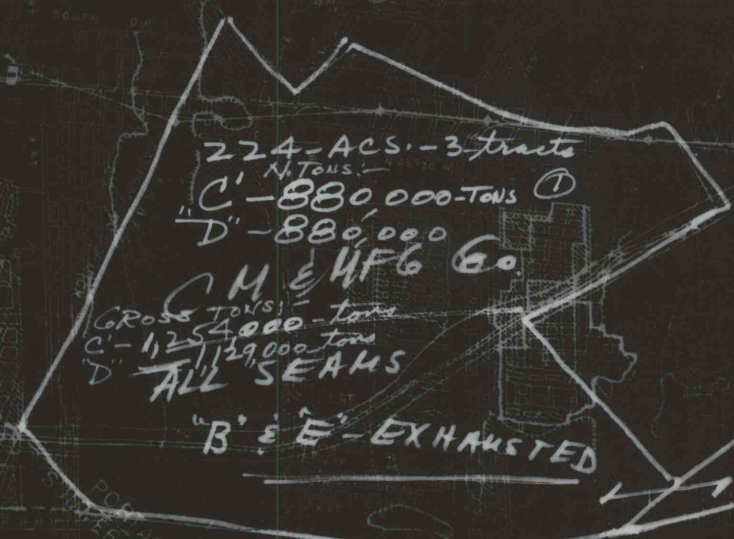 SOUTH
224-ACS.-3-tracts
N. TONS:-
"C" - 880,000-TONS ①
"D" - 880,000
C M & MFG Co.
GROSS TONS:-
"C" - 1,254,000-tons
"D" - 1,129,000 tons
ALL SEAMS
"B" & "E" - EXHAUSTED